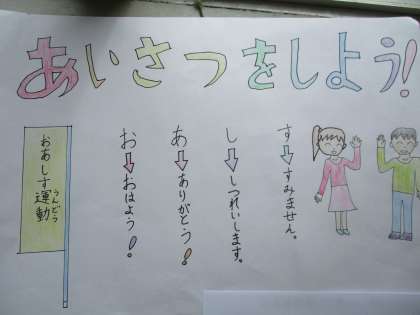 あいさつをしよう!
す→すみません。
し→しつれいします。
あ→ありがとう!
お→おはよう!
おあしす運動
うんどう